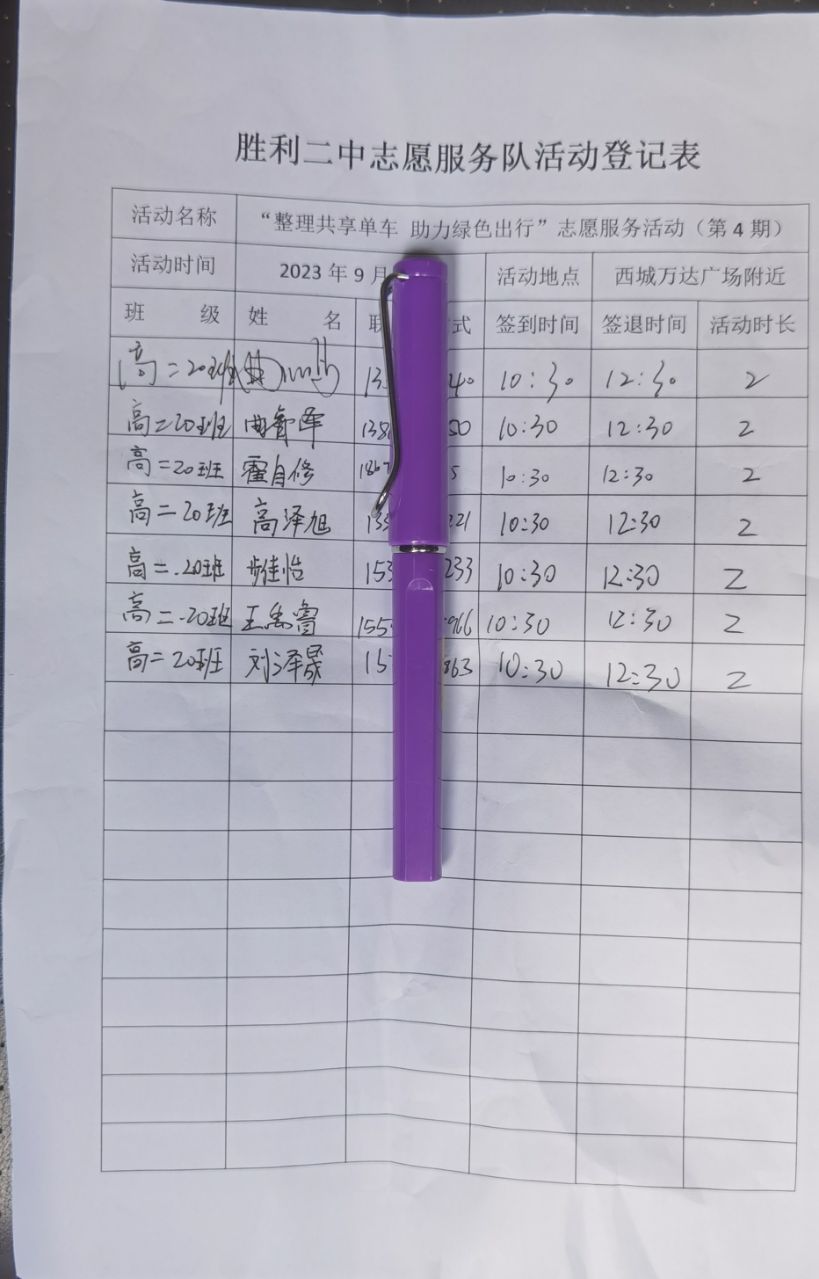 胜利二中志愿服务队活动登记表
活动名称 “整理共享单车 助力绿色出行”志愿服务活动（第 4 期）
活动时间 2023 年 9 月 活动地点 西城万达广场附近
班 级 姓 名 联 式 签到时间 签退时间 活动时长
高二20班 13 40 10:30 12:30 2
高二20班 曲 138 50 10:30 12:30 2
高二20班 霍自修 186 5 10:30 12:30 2
高二20班 高泽旭 133 221 10:30 12:30 2
高二.20班 步佳怡 153 233 10:30 12:30 2
高二.20班 155 966 10:30 12:30 2
高二20班 刘泽晟 15 863 10:30 12:30 2